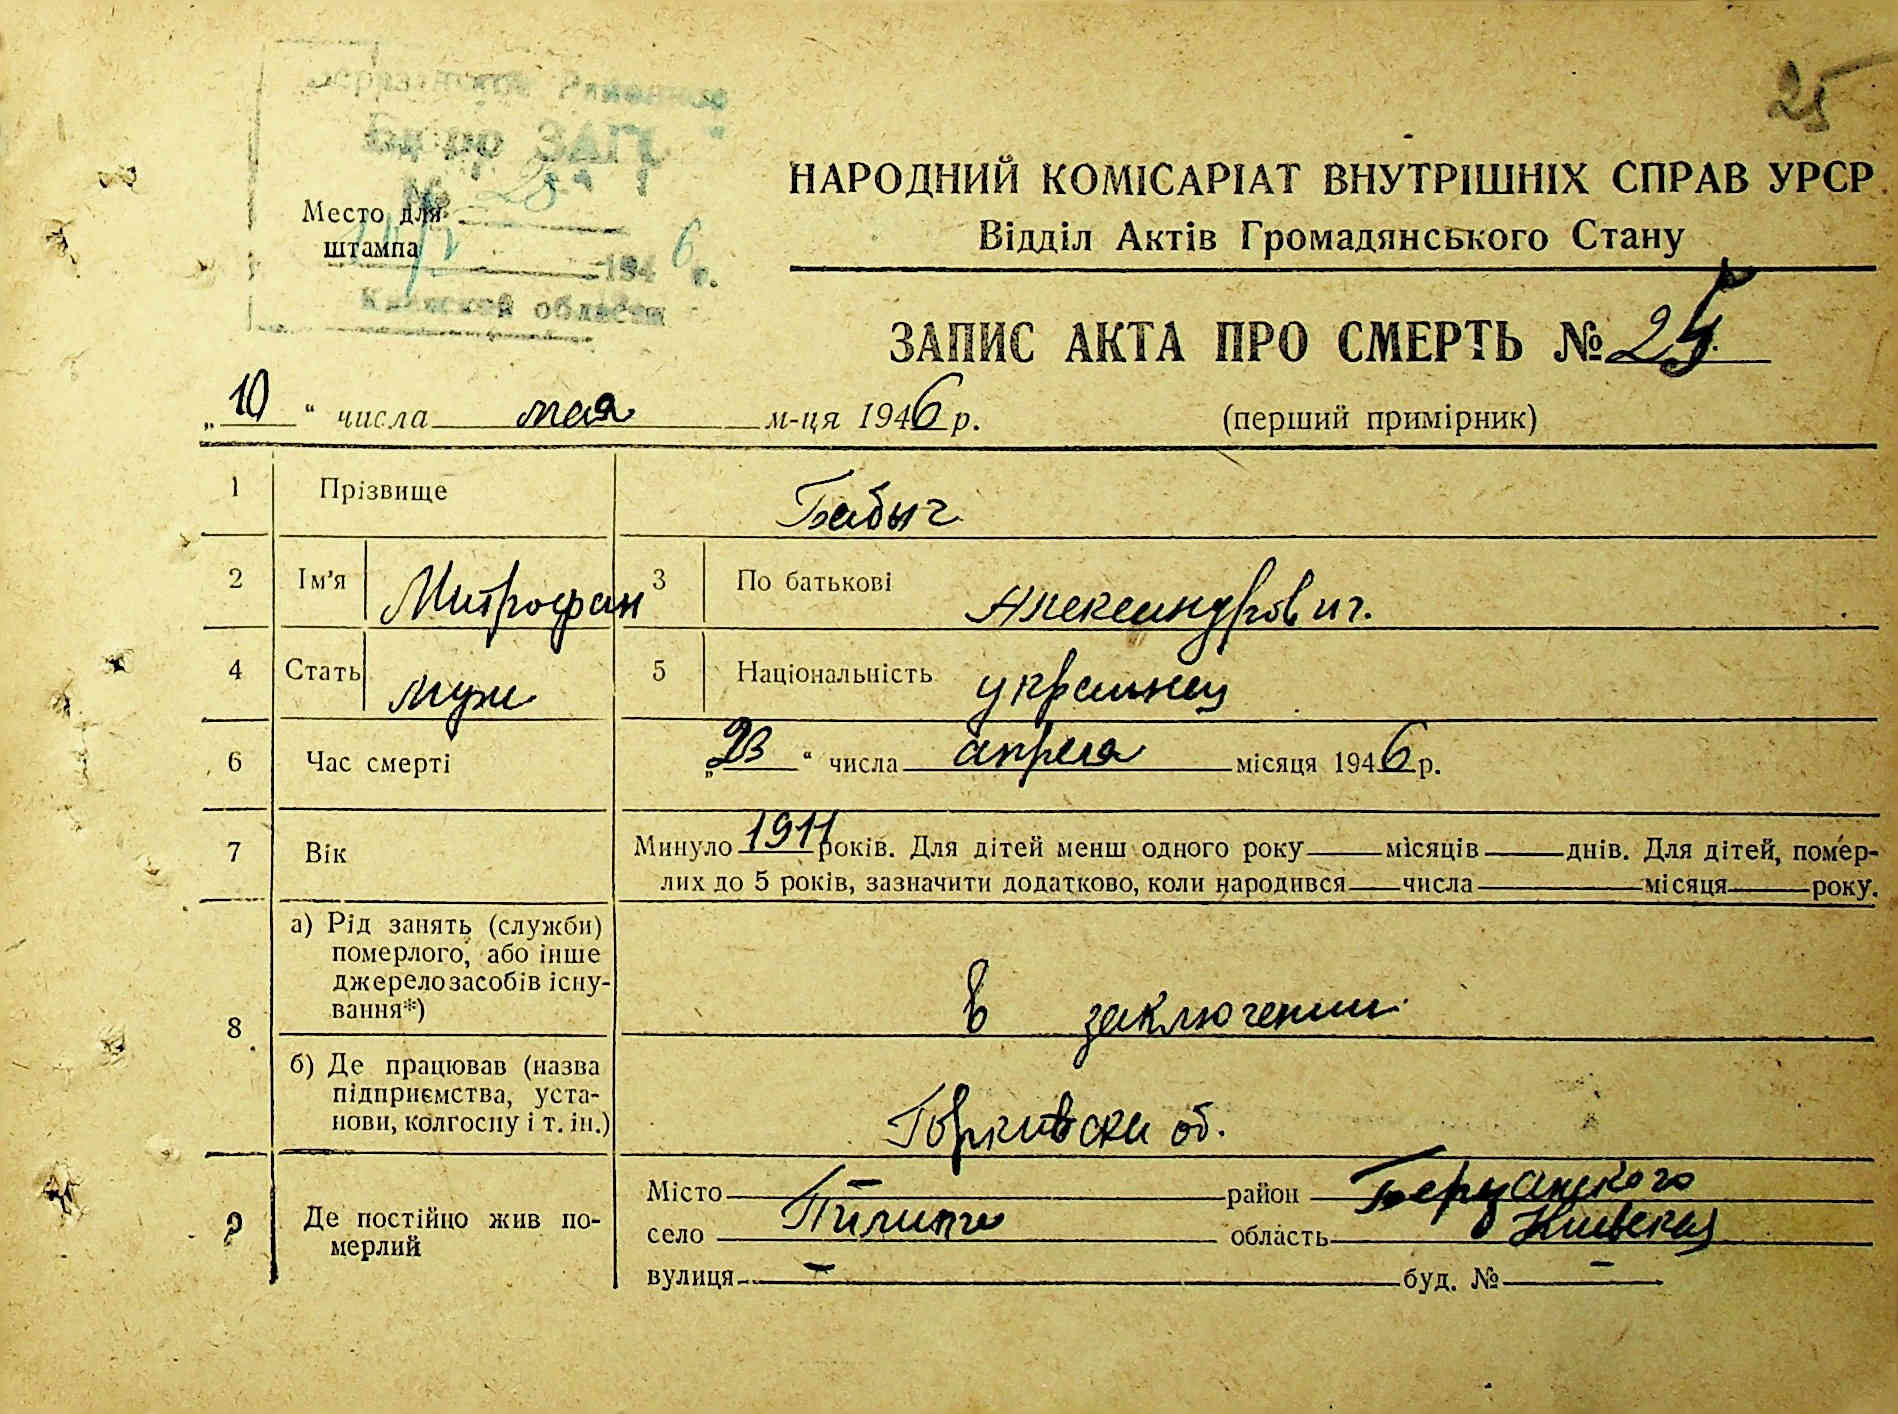 25
Районное
Бюро ЗАГС
№ 25
Место для
штампа
194 6 г.
Киевской области
НАРОДНИЙ КОМІСАРІАТ ВНУТРІШНІХ СПРАВ УРСР
Відділ Актів Громадянського Стану
ЗАПИС АКТА ПРО СМЕРТЬ № 25
„10“ числа мая м-ця 1946 р.
(перший примірник)
1 Прізвище Бабыч
2 Ім'я Митрофан 3 По батькові Александрович.
4 Стать муж 5 Національність украинец
6 Час смерті „23“ числа апреля місяця 1946 р.
7 Вік Минуло 1911 років. Для дітей менш одного року місяців днів. Для дітей, помер-
лих до 5 років, зазначити додатково, коли народився числа місяця року.
8 а) Рід занять (служби)
померлого, або інше
джерело засобів існу-
вання*)
в заключении
б) Де працював (назва
підприємства, уста-
нови, колгоспу і т. ін.)
об.
9 Де постійно жив по-
мерлий
Місто – район
село область Киевская
вулиця – буд. № –